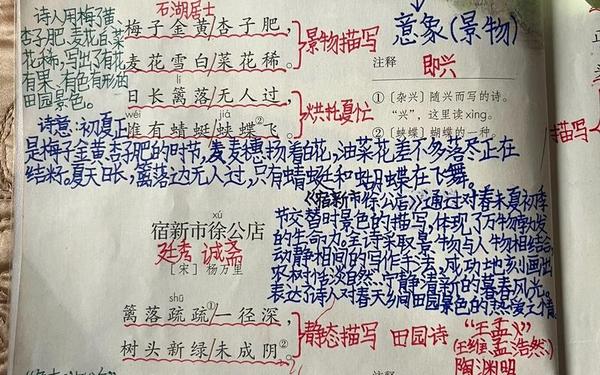 石湖居士
诗人用梅子黄、
杏子肥,麦花白,菜
花稀,写出了有花
有果、有色有形的
田园景色。
梅子金黄/杏子肥,
麦花雪白/菜花稀。
景物描写
意象(景物)
注释 即兴
lí
日长篱落/无人过,
wéi jiá
惟有蜻蜓/蛱蝶②飞。
烘托夏忙
①〔杂兴〕随兴而写的诗。
“兴”,这里读xìng。
②〔蛱蝶〕蝴蝶的一种。
描写
诗意:初夏正
是梅子金黄、杏子肥的时节,麦穗扬着白花,油菜花差不多落尽正在
结籽。夏天日长,篱落边无人过,只有蜻蜓和蝴蝶在飞舞。
《宿新市徐公店》通过对春末夏初季
节交替时景色的描写,体现了万物勃发
的生命力。全诗采取景物与人物相结合,
动静相间的写作手法,成功地刻画出
农村恬淡自然、宁静清新的暮春风光。
表达了诗人对春天乡间田园景色的热爱之情
xú
宿新市徐公店
廷秀 诚斋
[宋]杨万里
shū
篱落疏疏①/一径深,
树头新绿/未成阴②。
静态描写
田园诗
“王孟”
(王维孟浩然)
陶渊明